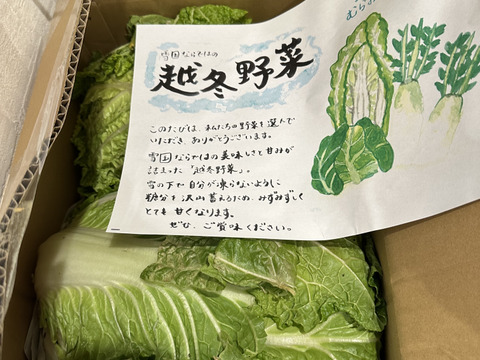 雪国ならではの
越冬野菜
このたびは、私たちの野菜を選んで
いただき、ありがとうございます。
雪国ならではの美味しさと甘みが
詰まった「越冬野菜」。
雪の下で自分が凍らないように
糖分を沢山蓄えるため、みずみずしく
とても甘くなります。
ぜひ、ご賞味ください。